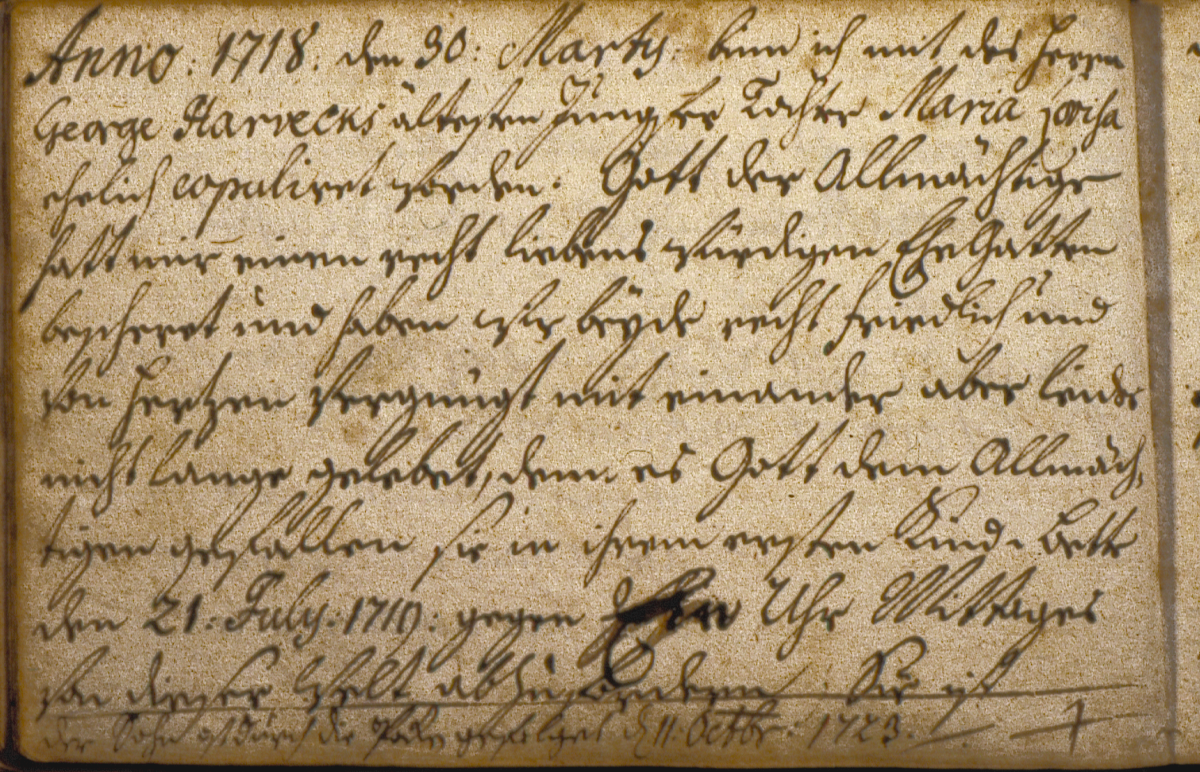 Anno: 1718. den 30: Marty: binn ich mit des Herrn
George Harvecks ältesten Jungfer Tochter Maria Lovisa
ehelich copuliret worden. Gott der Allmächtige
hatt mir einen recht liebens würdigen Ehe Gatten
bescheret und haben wir beyde recht friedlich und
von Hertzen vergnügt mit einander aber leider
nicht lange gelebet, denn es Gott dem Allmäch,
tigen gefallen sie in ihrem ersten Kind, bette
den 21: July: 1719: gegen Ein Uhr Mittages
von dieser Welt abzufordern Sie ist
der Sohn ist durch die gefolget d 11. Octbr: 1723.